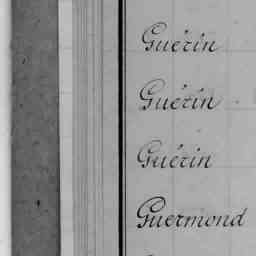 Guérin
Guérin
Guérin
Guermond